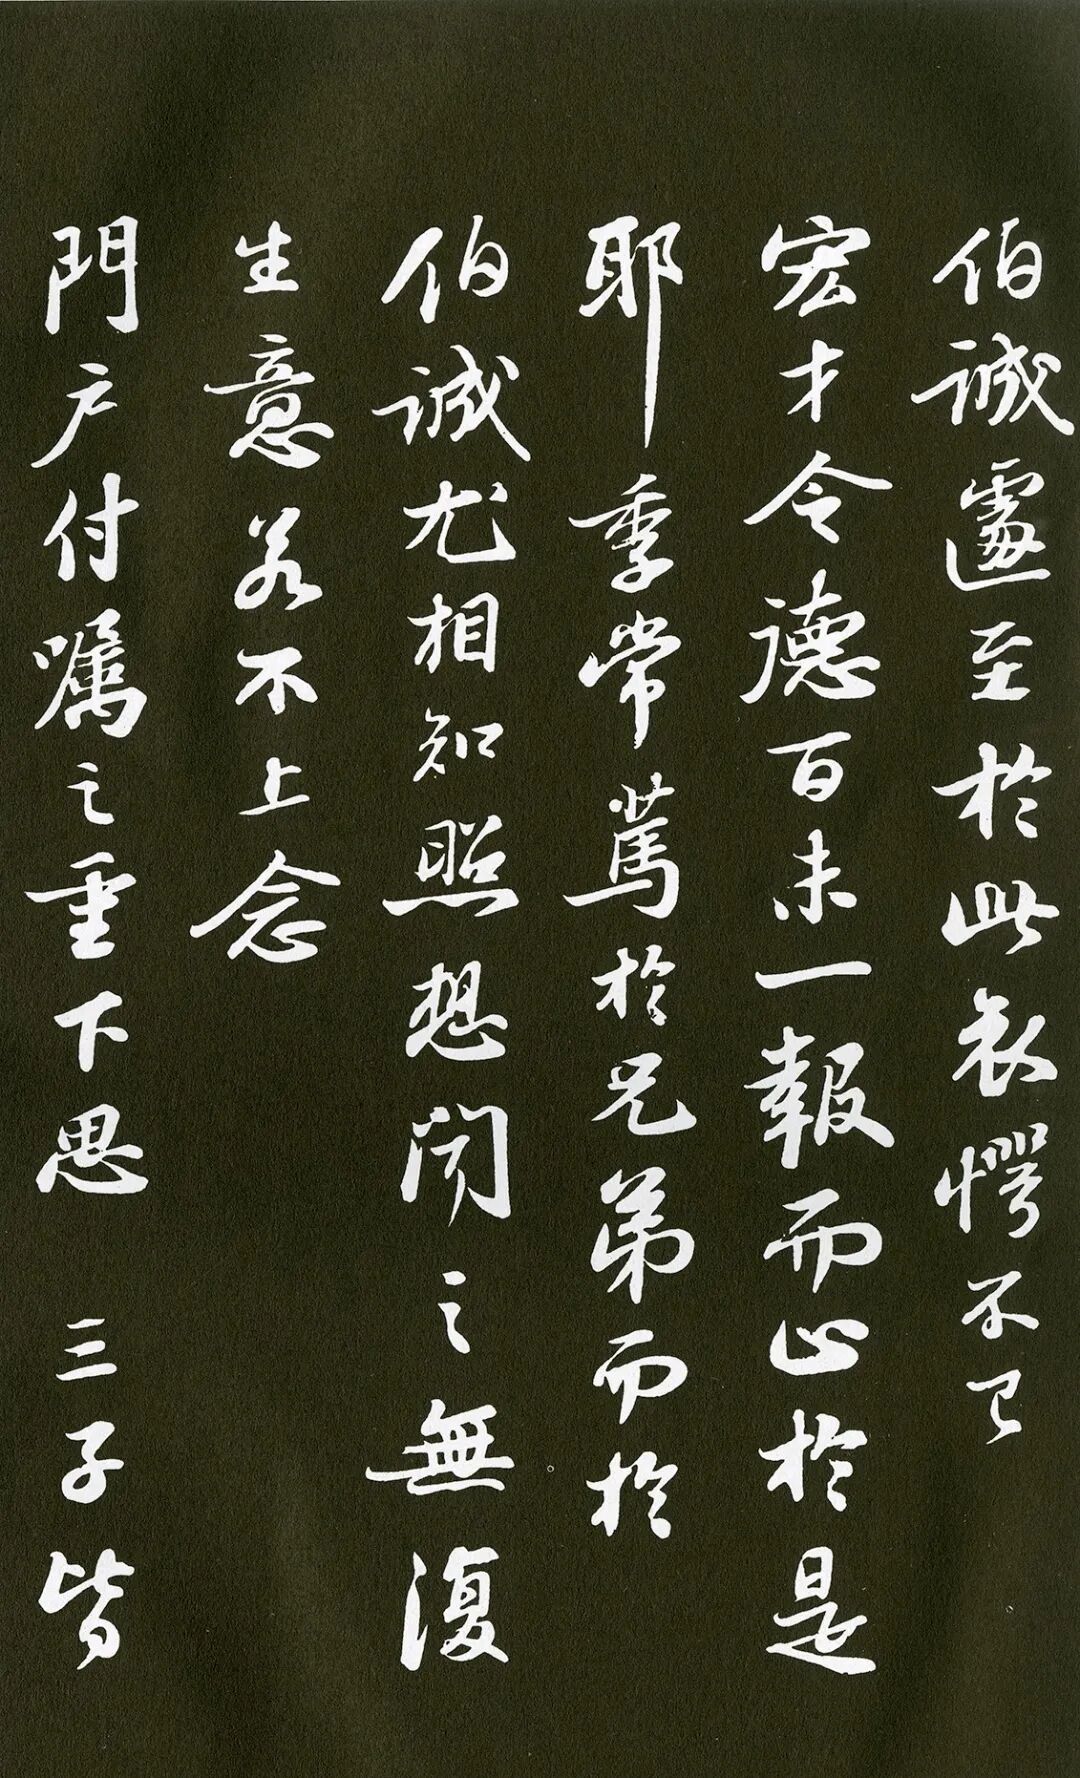 伯誠遽至於此哀愕不已
宏才令德百未一報而止於是
耶季常篤於兄弟而於
伯誠尤相知照想聞之無復
生意若不上念
門户付囑之重下思三子皆